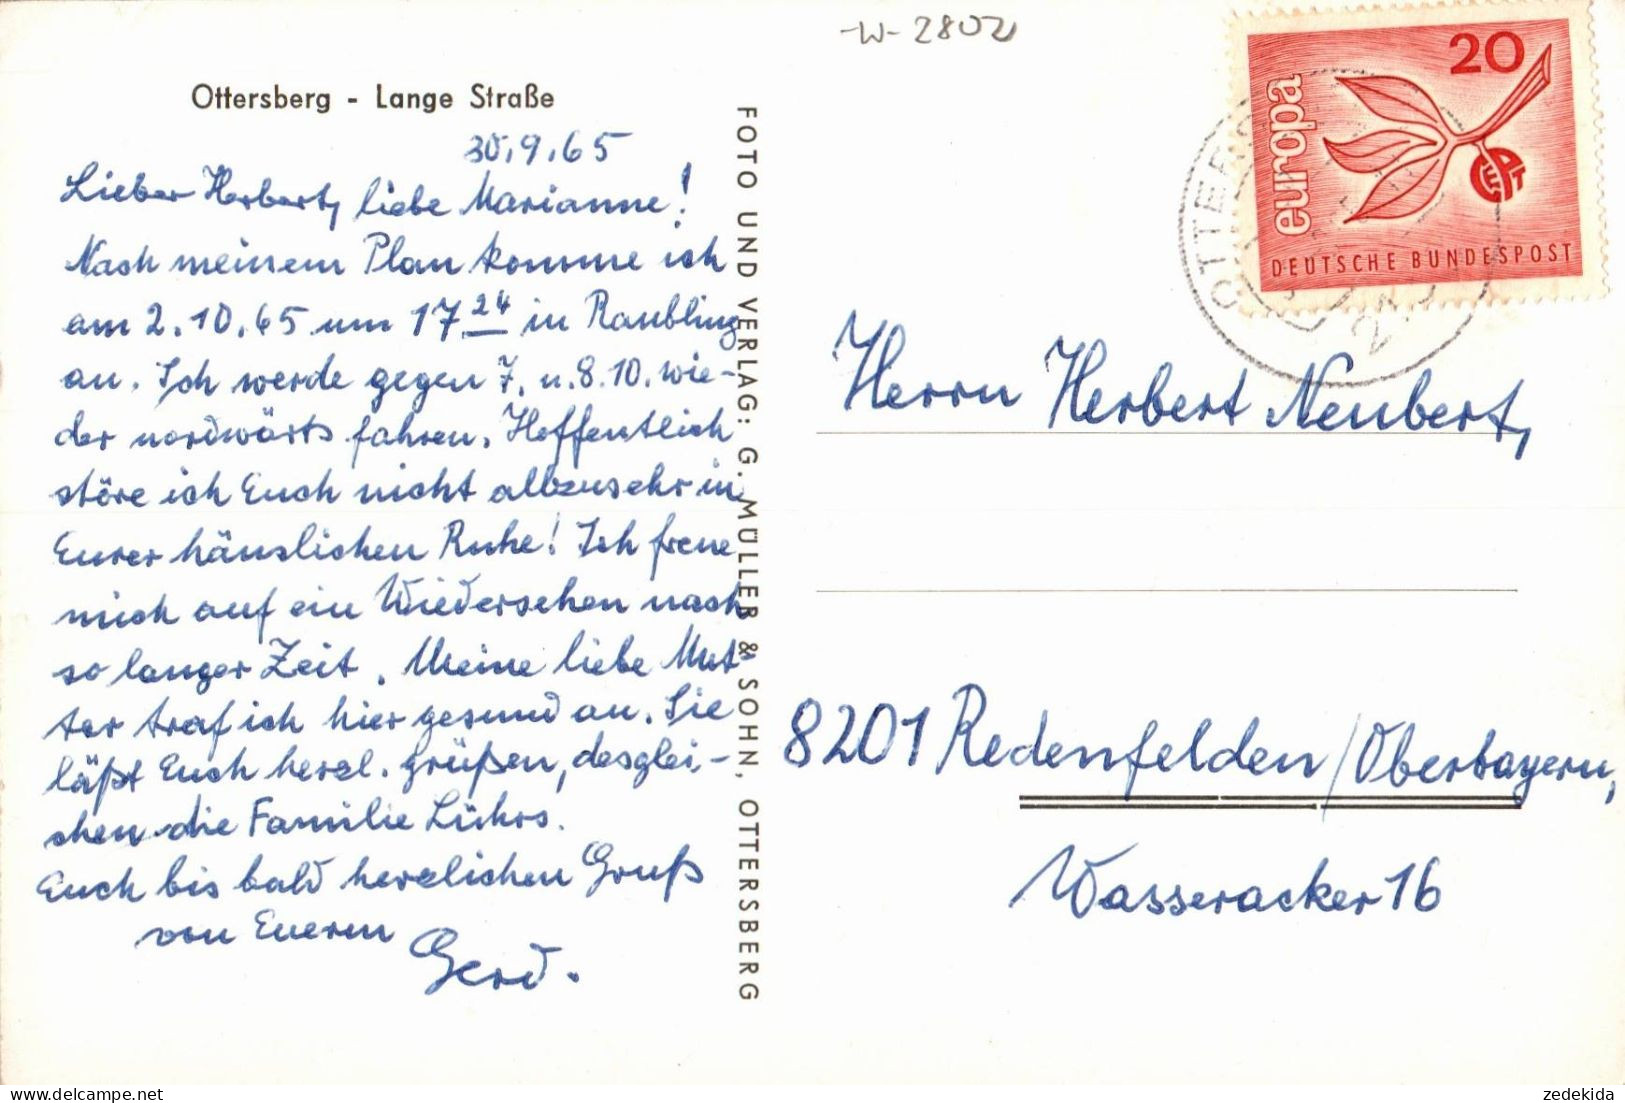 -W- 2802
Ottersberg - Lange Straße
30.9.65
Lieber Herbert, liebe Marianne!
Nach meinem Plan komme ich
am 2.10.65 um 17 24 in Raubling
an. Ich werde gegen 7. u. 8.10. wie-
der nordwärts fahren. Hoffentlich
störe ich Euch nicht allzusehr in
Eurer häuslichen Ruhe! Ich freue
mich auf ein Wiedersehen nach
so langer Zeit. Meine liebe Mut-
ter traf ich hier gesund an. Sie
läßt Euch herzl. grüßen, desglei-
chen die Familie Lührs.
Euch bis bald herzlichen Gruß
von Euerm
Gerd.
FOTO UND VERLAG: G. MÜLLER & SOHN, OTTERSBERG
20
europa
CEPT
DEUTSCHE BUNDESPOST
Herrn Herbert Neubert,
8201 Redenfelden/Oberbayern,
Wasseracker 16
zedekida